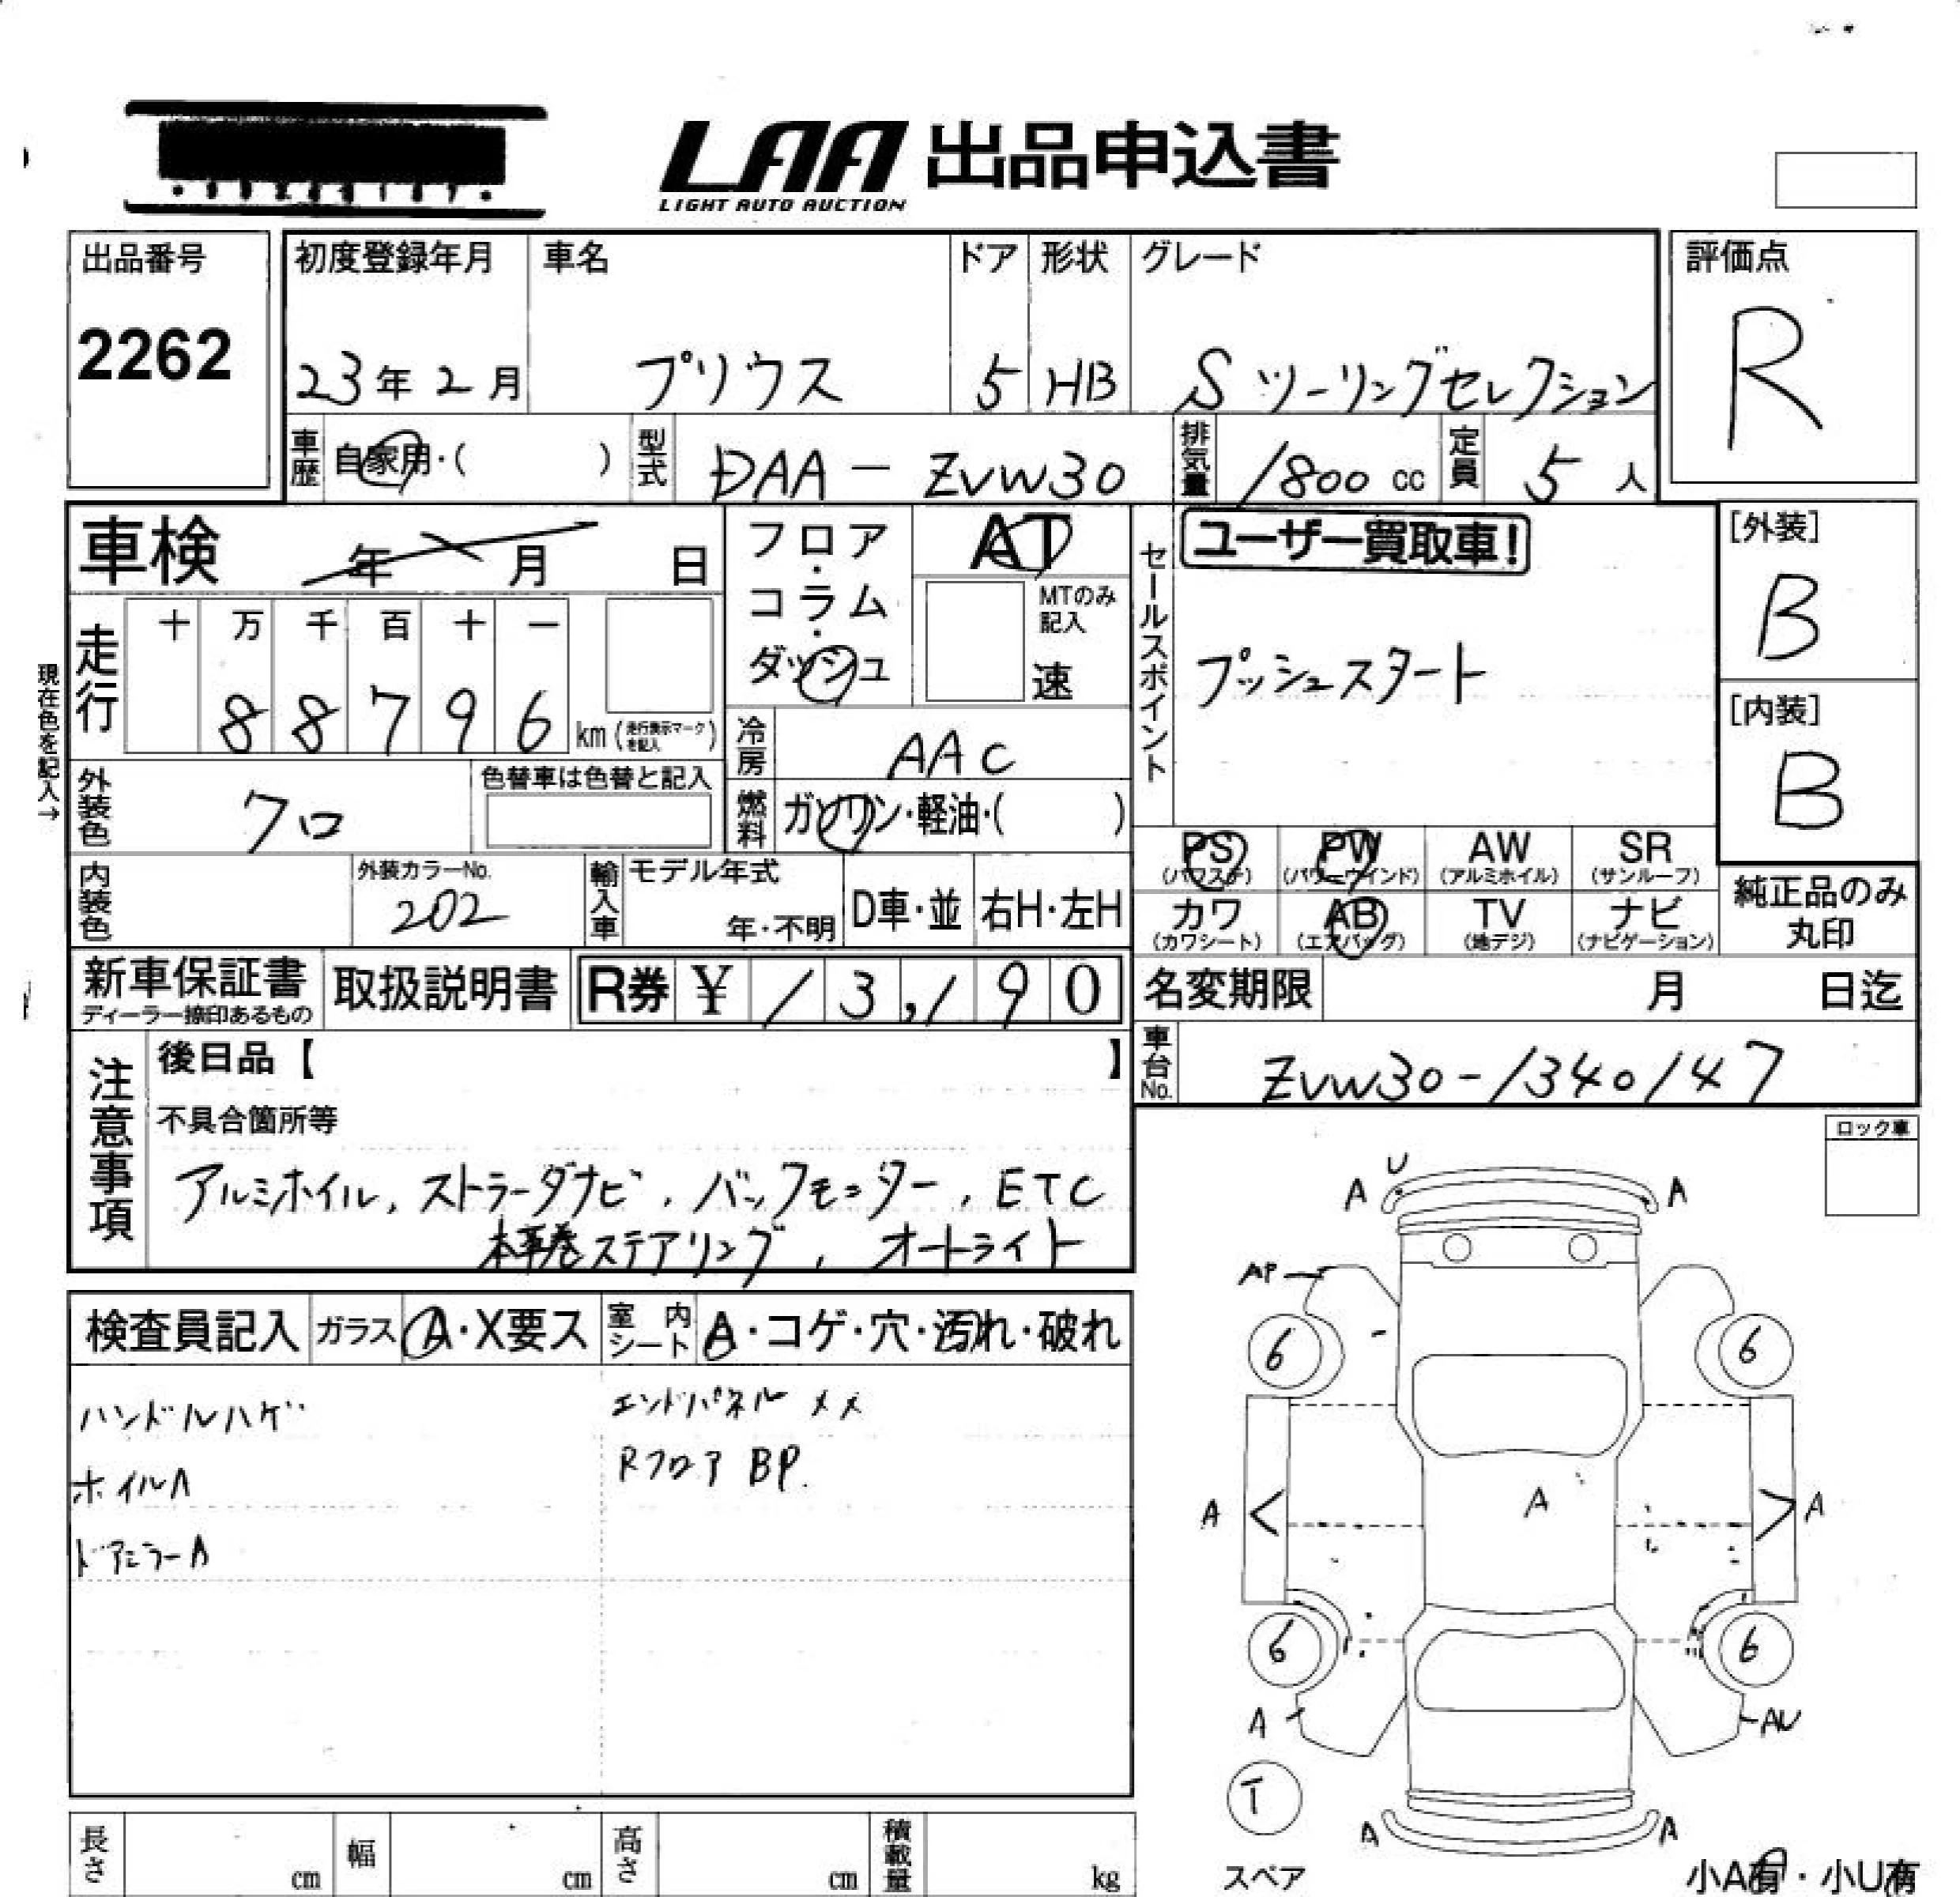 LAA 出品申込書
LIGHT AUTO AUCTION
出品番号 初度登録年月 車名 ドア 形状 グレード 評価点
2262 23年2月 プリウス 5 HB Sツーリングセレクション R
車歴 自家用・( ) 型式 DAA-ZVW30 排気量 1800 cc 定員 5 人
車検 年 月 日
フロア・コラム・ダッシュ
AT
MTのみ記入
速
セールスポイント
ユーザー買取車!
プッシュスタート
[外装]
B
[内装]
B
現在色を記入→
走行 十 万 千 百 十 一
88796 km (走行表示マークを記入)
冷房 AAC
外装色 クロ 色替車は色替と記入
燃料 ガソリン・軽油・( )
PS (パワステ) PW (パワーウインド) AW (アルミホイル) SR (サンルーフ)
カワ (カワシート) AB (エアバッグ) TV (地デジ) ナビ (ナビゲーション)
純正品のみ
丸印
内装色 外装カラーNo. 202 輸入車 モデル年式 年・不明 D車・並 右H・左H
新車保証書 ディーラー捺印あるもの 取扱説明書 R券 ¥ 13,190
名変期限 月 日迄
車台No. ZVW30-1340147
注意事項
後日品【 】
不具合箇所等
アルミホイル, ストラーダナビ, バックモニター, ETC
本革巻ステアリング, オートライト
ロック車
検査員記入 ガラス A・X要ス 室内シート A・コゲ・穴・汚れ・破れ
ハンドルハゲ エンドパネル XX
ホイルA Rフロア BP.
ドアミラーA
U
A A
AP
6 6
A A A
6 6
A AU
T
A A
スペア
小A有・小U有
長さ cm 幅 cm 高さ cm 積載量 kg